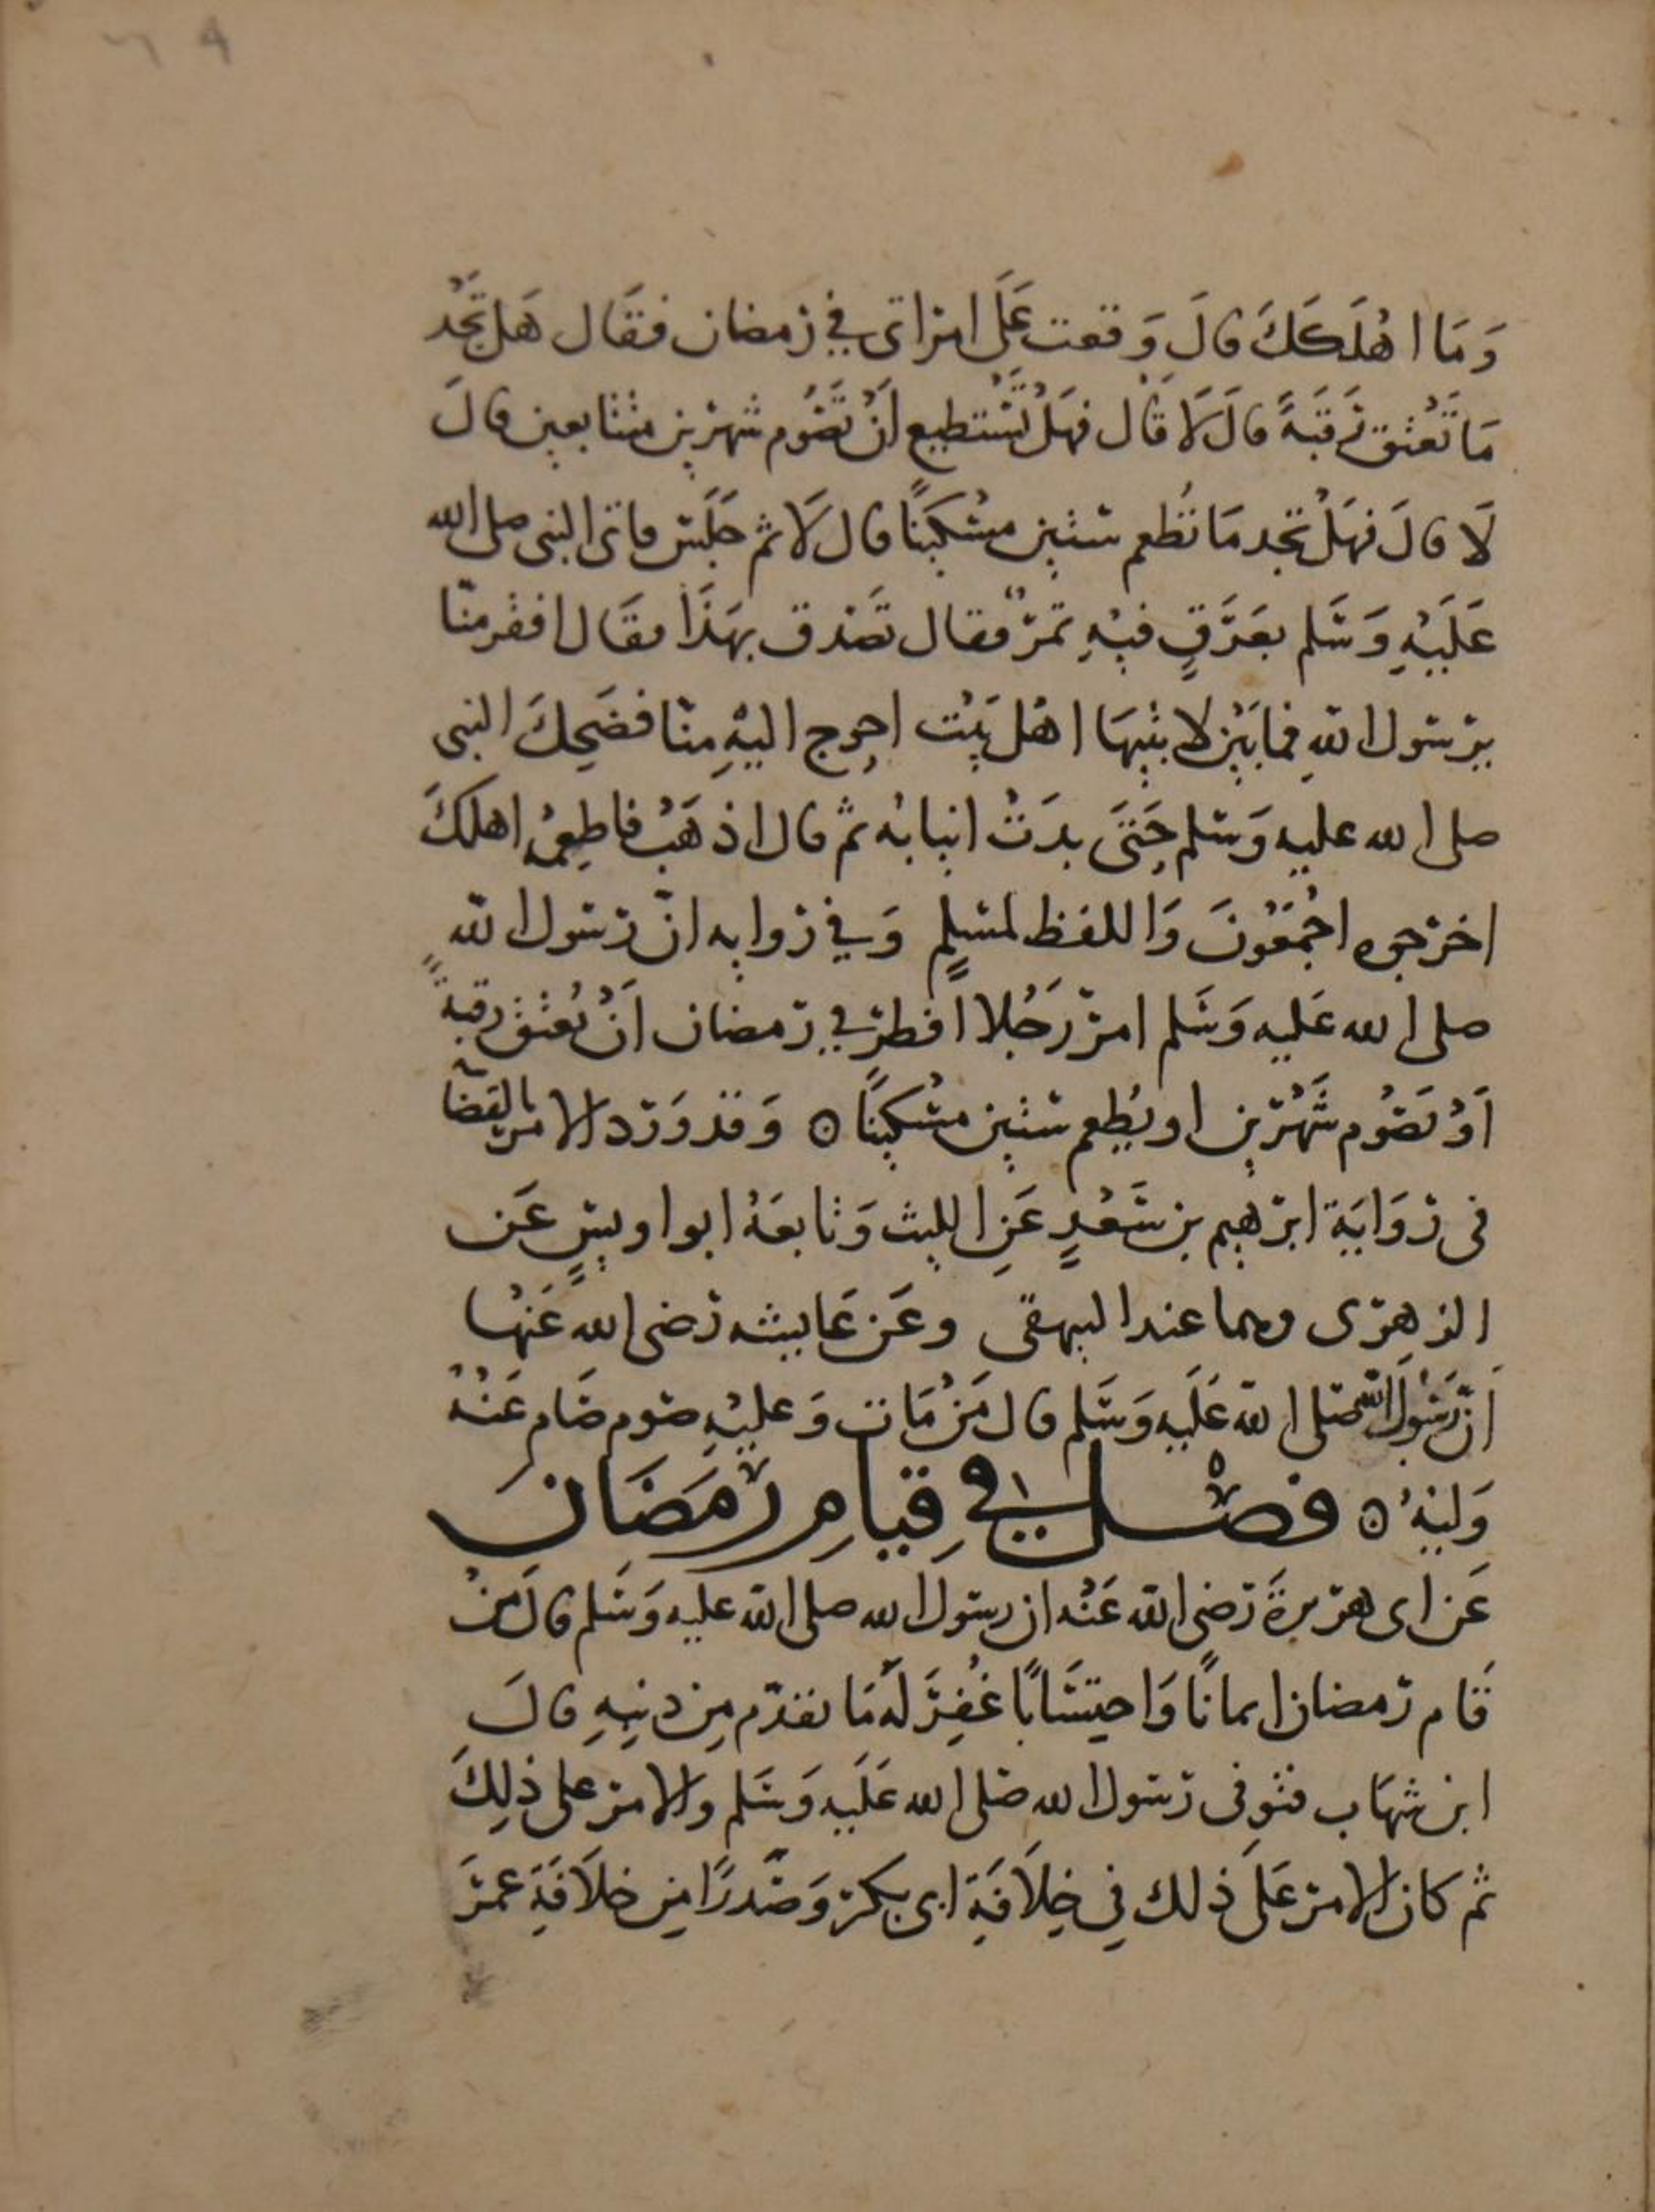 وَمَا اهْلَكَكَ قالَ وَقعت عَلَى امراتى في رمضان فقَال هَل تَجْد
مَا تَعْتق رَقبَةً قالَ لَا قال فهَلْ تَسْتطيع اَنْ تَصُوم شهْرين متتابعين قالَ
لَا قالَ فهَلْ تجد مَا تُطعم ستين مسْكينًا قال لَا ثم جَلَسَ فاتى النبى صلى الله
عَلَيْهِ وَسَلم بعَرَقٍ فيْهِ تمرٌ فقال تصَدق بهَذَا فقَال افقر منّا
يرسول اللهِ فما بَيْن لابتيهَا اهْل بَيْت احوج اليْهِ مِنّا فضَحِكَ النبى
صلى الله عليه وَسلم حَتىَ بدَتْ انيابُه ثم قال اذهَبْ فاطعِمْهُ اهلكَ
اخرجه اجْمَعُونَ وَاللفظ لمسْلمٍ وَفي روايه انّ رسول اللهِ
صلى الله عَليه وَسَلم امرَ رَجُلا افطرَ في رمضان اَنْ يُعْتق رقبةً
اَوْ يَصُوم شَهْرين او يُطعم ستين مسْكينًا ⊙ وَقدْ وَرد الامر بالقضآ
فى روَايَة ابرهيم بن سَعْدٍ عَنِ الليث وَتابعَهُ ابو اويسٍ عَن
الزهرى وهما عند البيهقى وعَن عَايشه رضى الله عَنْها
اَنّ رَسُولَ الله صَلى الله عَلَيه وَسَلم قال مَنْ مَات وَعليْهِ صَوم صَام عَنْهُ
وَليُهُ ⊙ فصْل في قِيَامِ رَمَضَان
عَن ابى هريرةَ رَضى الله عَنْه ان رسول الله صلى الله عليه وَسَلم قالَ مَنْ
قَام رمضان ايمانًا وَاحتِسَابًا غُفِرَ لَهُ مَا تقدّم مِن ذنبِهِ قالَ
ابن شهَاب فتوفى رَسول الله صَلى الله عَلَيه وَسَلم والامر على ذلِكَ
ثم كان الامر عَلى ذلك فِي خِلَافَةِ ابى بكر وَصَدرًا مِن خلَافَةِ عمرَ